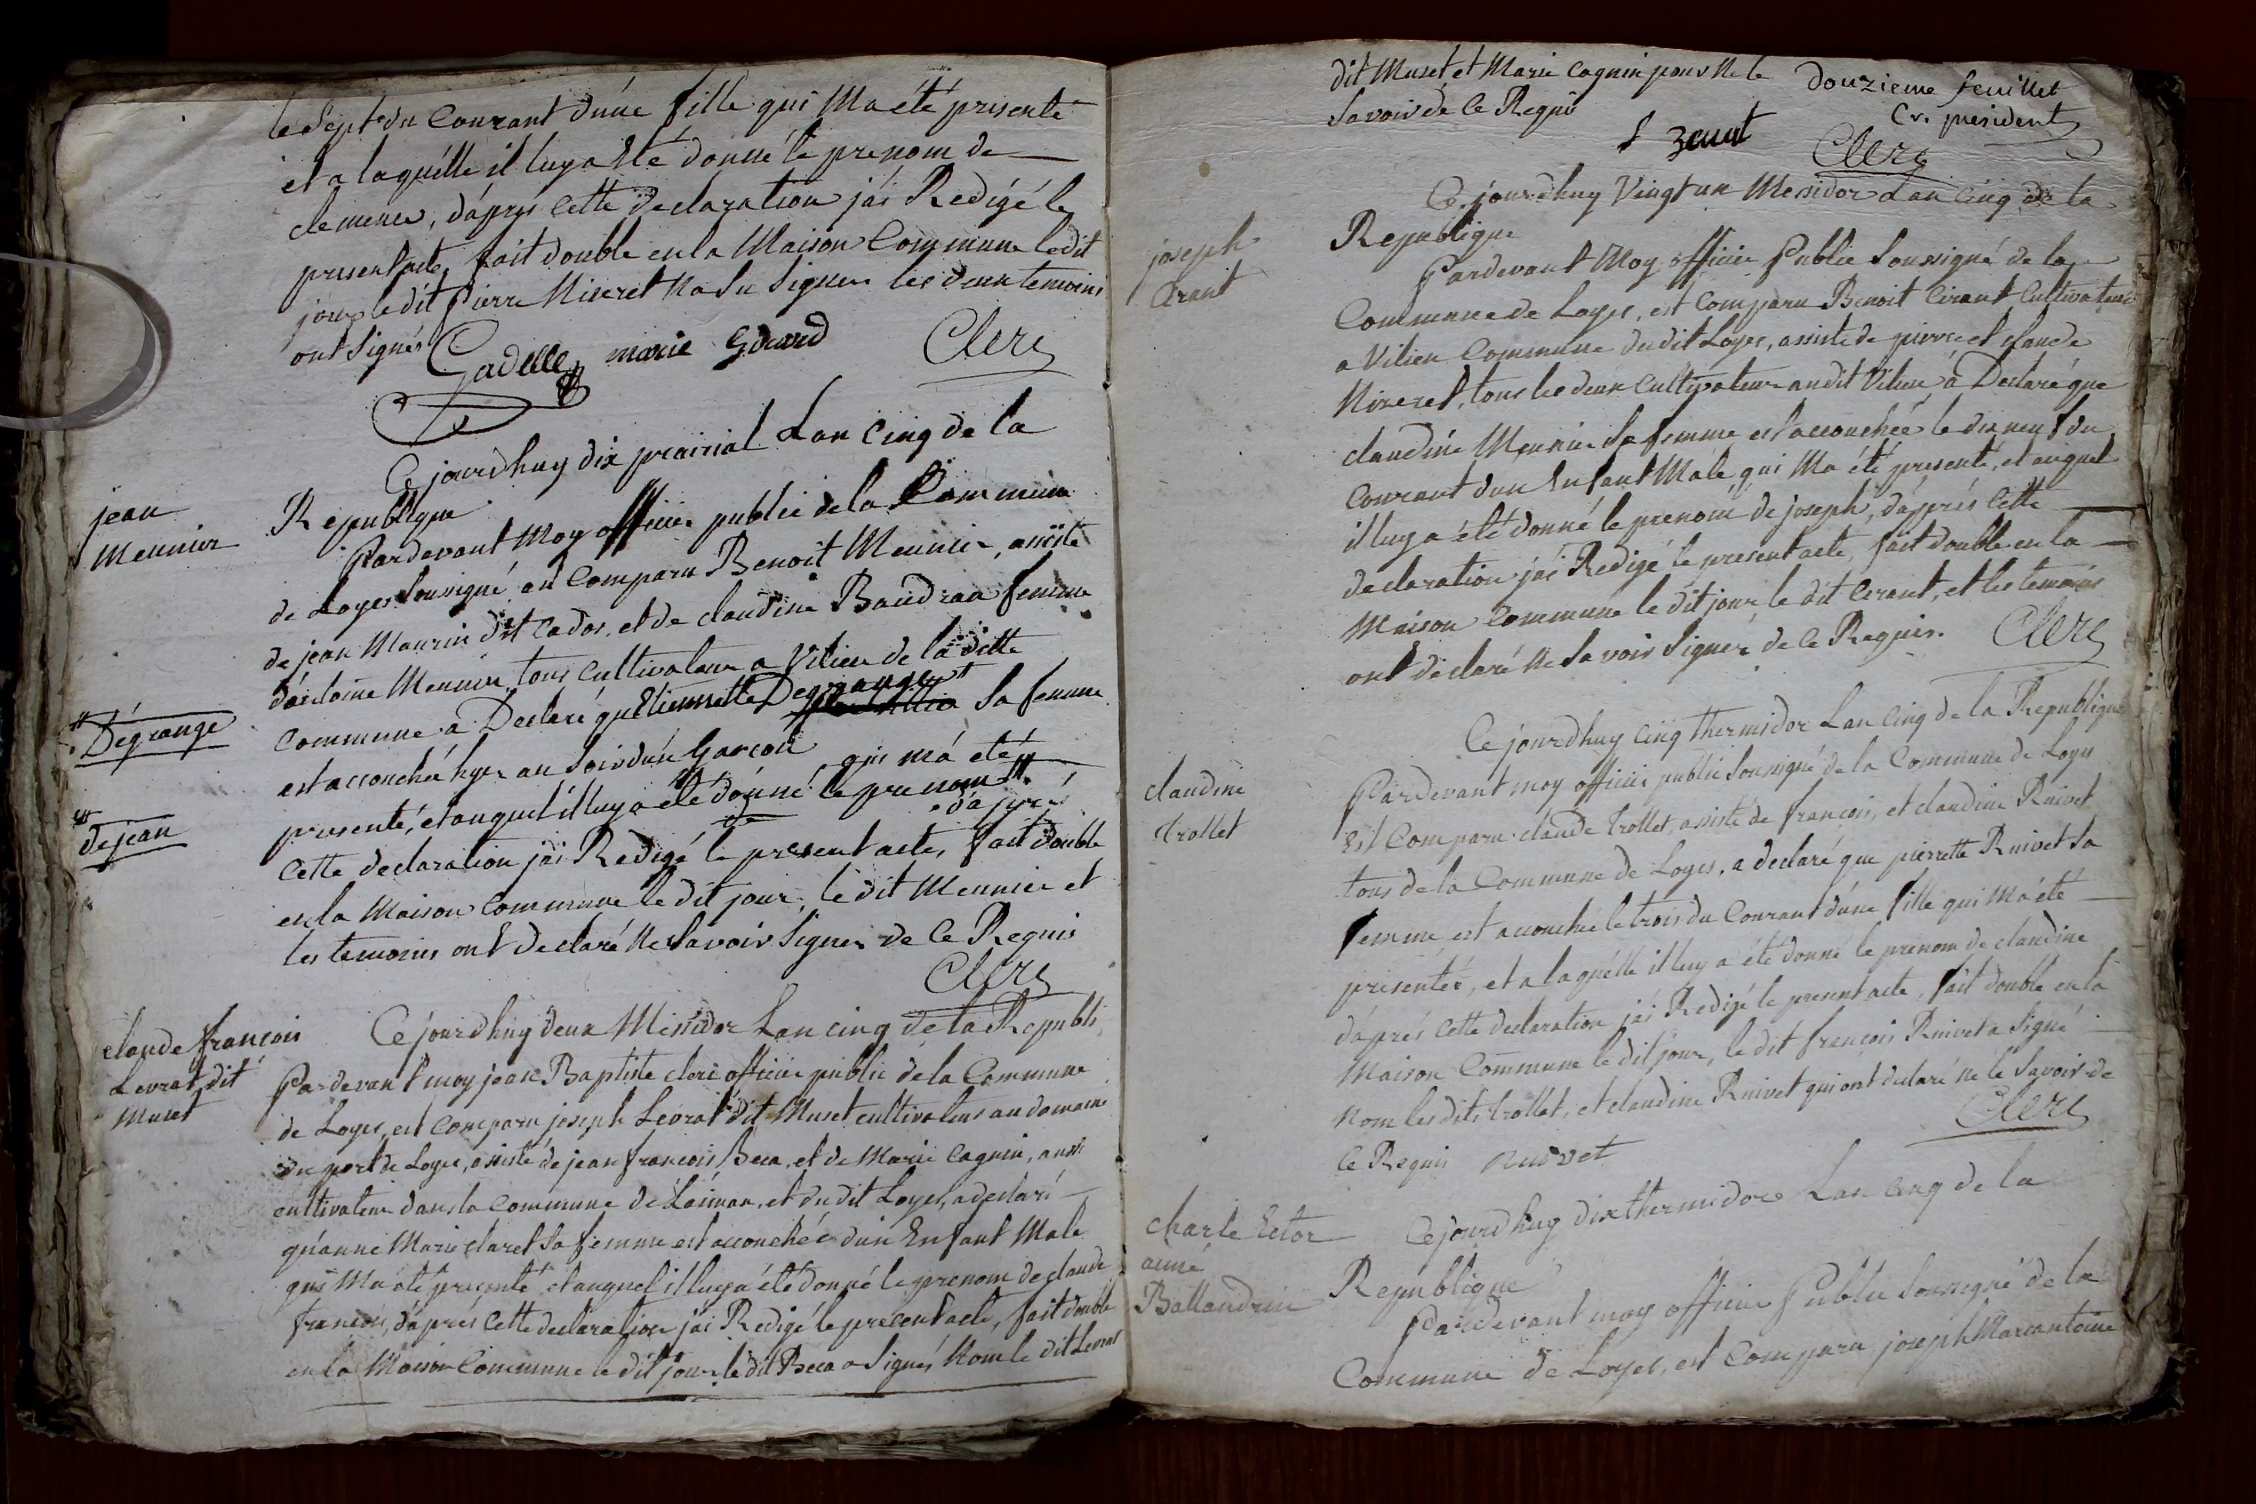 le sept du Courant d'une fille qui M'a été presenté
et a laquelle il luy a Eté donné le prenom de
clemence, d'aprés cette declaration j'ai Redigé le
present acte, fait double en la Maison Commune le dit
jour le dit pierre Niseret Na Su Signer les deux temoins
ont Signés
Gadelle marie Gdrard Clerc
Ce jourdhuy dix prairial Lan Cinq de la
jean
Meunier
Republique
Pardevant Moy officier public de la Commune
de Loyes Soussigné, est Comparu Benoit Meunier, assisté
de jean Maurin dit Cados, et de claudine Baudran femme
d'antoine Meunier, tous cultivateur a Vilieu de la ditte
Commune a Declaré qu'Etiennette Degrange Sa femme
Dégrange
est accouchée hyer au Soir d'un Garçon qui m'a eté
presenté, et auquel il luy a été donné le prenom
de jean
d'aprés
Cette declaration jai Redigé le present acte, fait double
en la Maison Commune le dit jour, le dit Meunier et
les temoins ont declaré Ne Savoir Signer de Ce Requis
Clerc
claude françois
Levrat dit
Muset
Ce jourdhuy deux Messidor Lan cinq de la Republi
Pardevant moy jean Baptiste clerc officier public de la Commune
de Loyes, est comparu joseph Levrat dit Muset cultivateur au domaine
du port de Loyes, assisté de jean françois Beca, et de Marie Cagnin, aussi
cultivateur dans la Commune de Laiman, et du dit Loyes, a declaré
qu'anne Marie claret Sa femme est accouchée d'un Enfant Male
qui M'a été presenté, et auquel il luy a été donné le prenom de claude
françois, d'aprés Cette declaration jai Redigé le present acte, fait double
en la Maison Commune le dit jour, le dit Beca a Signés Nom le dit Levrat
dit Muset et Marie Cagnin pour Ne le
Savoir de Ce Requis
douzieme feuillet
Cr. president
Clerc
Ce jourdhuy Vingt un Messidor Lan Cinq de la
joseph
Cirant
Republique
Pardevant Moy officier Public Soussigné de la
Commune de Loyes, est Comparu Benoit Cirant Cultivateur
a Vilieu Commune du dit Loyes, assisté de pierre et claude
Niseret, tous les deux Cultivateur au dit Vilieu a Declaré que
claudine Meunier Sa femme est accouchée le dixneuf du
Courant d'un Enfant Male, qui M'a été presenté, et auquel
il luy a été donné le prenom de joseph, d'aprés Cette
declaration j'ai Redigé le present acte, fait double en la
Maison Commune le dit jour le dit Cirant, et les temoins
ont declaré Ne Savoir Signer de Ce Requis. Clerc
Ce jourdhuy Cinq thermidor Lan Cinq de la Republique
claudine
trollet
Pardevant moy officier public Soussigné de la Commune de Loyes
est Comparu claude trollet, assisté de françois, et claudine Ruivet
tous de la Commune de Loyes, a declaré que pierrette Ruivet Sa
femme, est accouchée le trois du Courant d'une fille qui M'a été
presentée, et a laquelle il luy a été donné le prenom de claudine
d'aprés Cette declaration j'ai Redigé le present acte, fait double en la
Maison Commune le dit jour, le dit françois Ruivet a Signé
Nom les dits trollet, et claudine Ruivet qui ont declaré ne le Savoir de
Ce Requis Ruivet Clerc
Ce jourdhuy dix thermidor Lan Cinq de la
charle Ector
aimé
Ballandrin
Republique
Pardevant moy officier Public Soussigné de la
Commune de Loyes, est Comparu joseph Marcantoine